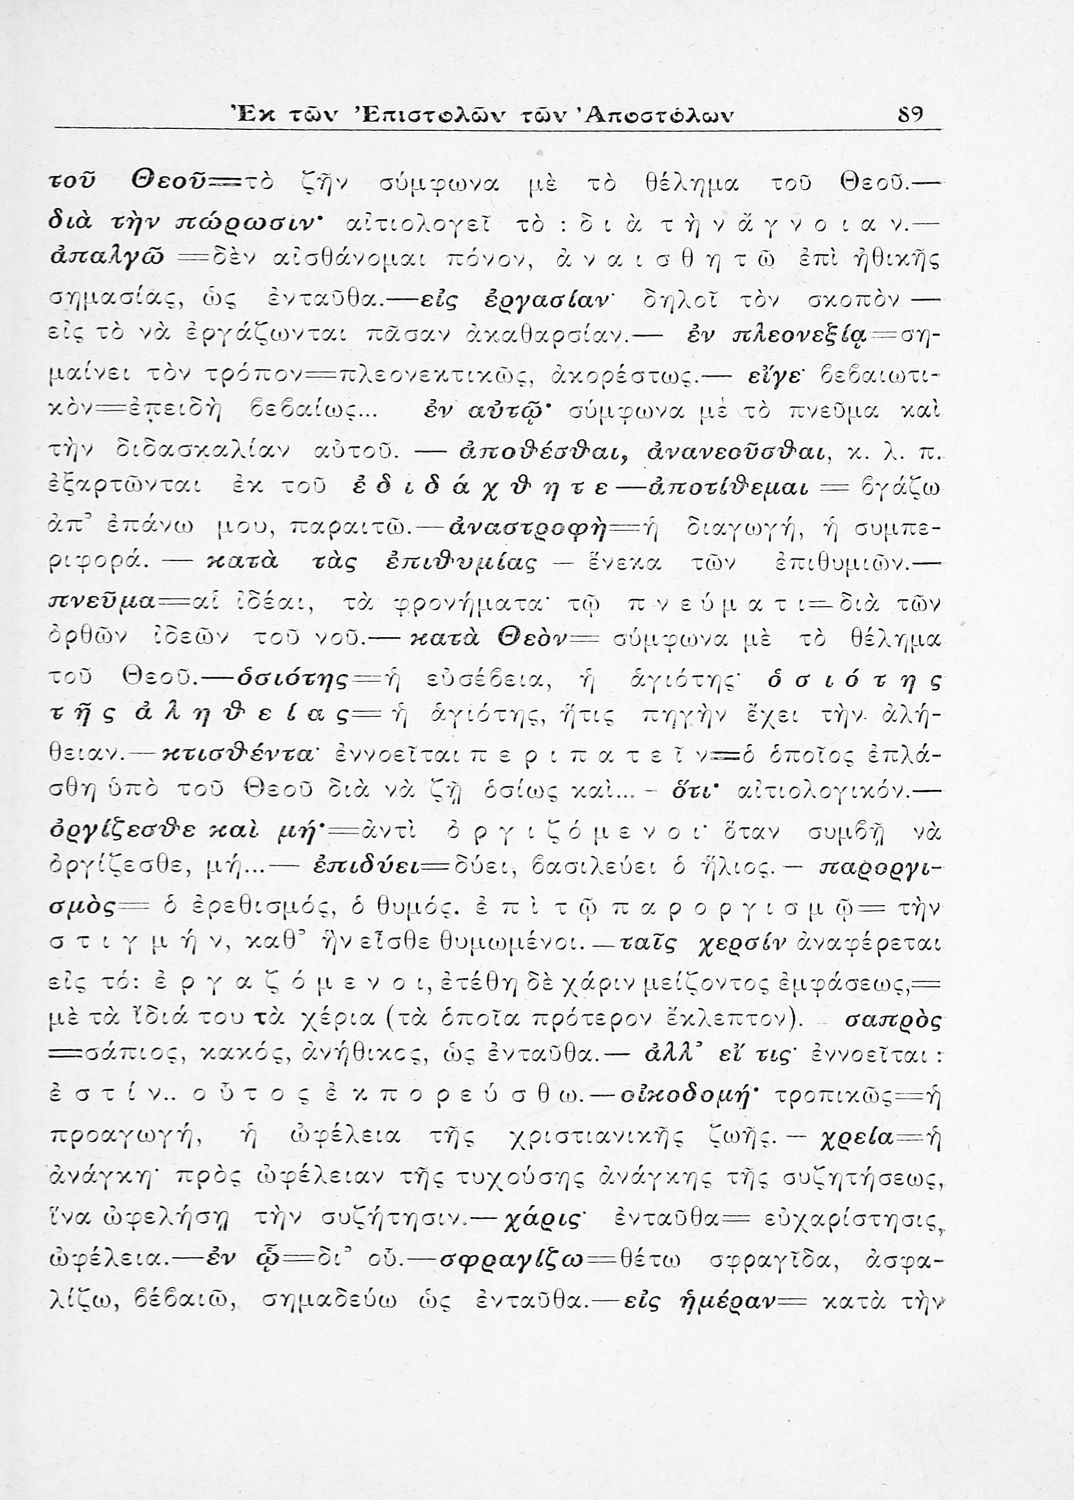 Ἐκ τῶν Ἐπιστολῶν τῶν Ἀποστόλων 89
τοῦ Θεοῦ=τὸ ζῆν σύμφωνα μὲ τὸ θέλημα τοῦ Θεοῦ.—
διὰ τὴν πώρωσιν· αἰτιολογεῖ τὸ : δ ι ὰ τ ὴ ν ἄ γ ν ο ι α ν.—
ἀπαλγῶ =δὲν αἰσθάνομαι πόνον, ἀ ν α ι σ θ η τ ῶ ἐπὶ ἠθικῆς
σημασίας, ὡς ἐνταῦθα.—εἰς ἐργασίαν· δηλοῖ τὸν σκοπὸν —
εἰς τὸ νὰ ἐργάζωνται πᾶσαν ἀκαθαρσίαν.— ἐν πλεονεξίᾳ=ση-
μαίνει τὸν τρόπον=πλεονεκτικῶς, ἀκορέστως.— εἴγε· βεβαιωτι-
κὸν=ἐπειδὴ βεβαίως... ἐν αὐτῷ· σύμφωνα μὲ τὸ πνεῦμα καὶ
τὴν διδασκαλίαν αὐτοῦ. — ἀποθέσθαι, ἀνανεοῦσθαι, κ. λ. π.
ἐξαρτῶνται ἐκ τοῦ ἐ δ ι δ ά χ θ η τ ε —ἀποτίθεμαι = βγάζω
ἀπ’ ἐπάνω μου, παραιτῶ.—ἀναστροφὴ=ἡ διαγωγή, ἡ συμπε-
ριφορά. — κατὰ τὰς ἐπιθυμίας — ἕνεκα τῶν ἐπιθυμιῶν.—
πνεῦμα=αἱ ἰδέαι, τὰ φρονήματα· τῷ π ν ε ύ μ α τ ι=διὰ τῶν
ὀρθῶν ἰδεῶν τοῦ νοῦ.— κατὰ Θεὸν= σύμφωνα μὲ τὸ θέλημα
τοῦ Θεοῦ.—ὁσιότης=ἡ εὐσέβεια, ἡ ἁγιότης· ὁ σ ι ό τ η ς
τ ῆ ς ἀ λ η θ ε ί α ς= ἡ ἁγιότης, ἥτις πηγὴν ἔχει τὴν ἀλή-
θειαν.—κτισθέντα· ἐννοεῖται π ε ρ ι π α τ ε ῖ ν=ὁ ὁποῖος ἐπλά-
σθη ὑπὸ τοῦ Θεοῦ διὰ νὰ ζῇ ὁσίως καὶ... - ὅτι· αἰτιολογικόν.—
ὀργίζεσθε καὶ μή·=ἀντὶ ὀ ρ γ ι ζ ό μ ε ν ο ι· ὅταν συμβῇ νὰ
ὀργίζεσθε, μή...— ἐπιδύει=δύει, βασιλεύει ὁ ἥλιος.— παροργι-
σμὸς= ὁ ἐρεθισμός, ὁ θυμός. ἐ π ὶ τ ῷ π α ρ ο ρ γ ι σ μ ῷ= τὴν
σ τ ι γ μ ή ν, καθ’ ἣν εἶσθε θυμωμένοι.—ταῖς χερσίν ἀναφέρεται
εἰς τό: ἐ ρ γ α ζ ό μ ε ν ο ι, ἐτέθη δὲ χάριν μείζοντος ἐμφάσεως,=
μὲ τὰ ἴδιά του τὰ χέρια (τὰ ὁποῖα πρότερον ἔκλεπτον). - σαπρὸς
=σάπιος, κακός, ἀνήθικος, ὡς ἐνταῦθα.— ἀλλ’ εἴ τις· ἐννοεῖται :
ἐ σ τ ί ν.. ο ὗ τ ο ς ἐ κ π ο ρ ε ύ σ θ ω.—οἰκοδομή· τροπικῶς=ἡ
προαγωγή, ἡ ὠφέλεια τῆς χριστιανικῆς ζωῆς.— χρεία=ἡ
ἀνάγκη· πρὸς ὠφέλειαν τῆς τυχούσης ἀνάγκης τῆς συζητήσεως,
ἵνα ὠφελήσῃ τὴν συζήτησιν.—χάρις· ἐνταῦθα= εὐχαρίστησις,
ὠφέλεια.—ἐν ᾧ=δι’ οὗ.—σφραγίζω=θέτω σφραγῖδα, ἀσφα-
λίζω, βέβαιῶ, σημαδεύω ὡς ἐνταῦθα.—εἰς ἡμέραν= κατὰ τὴν